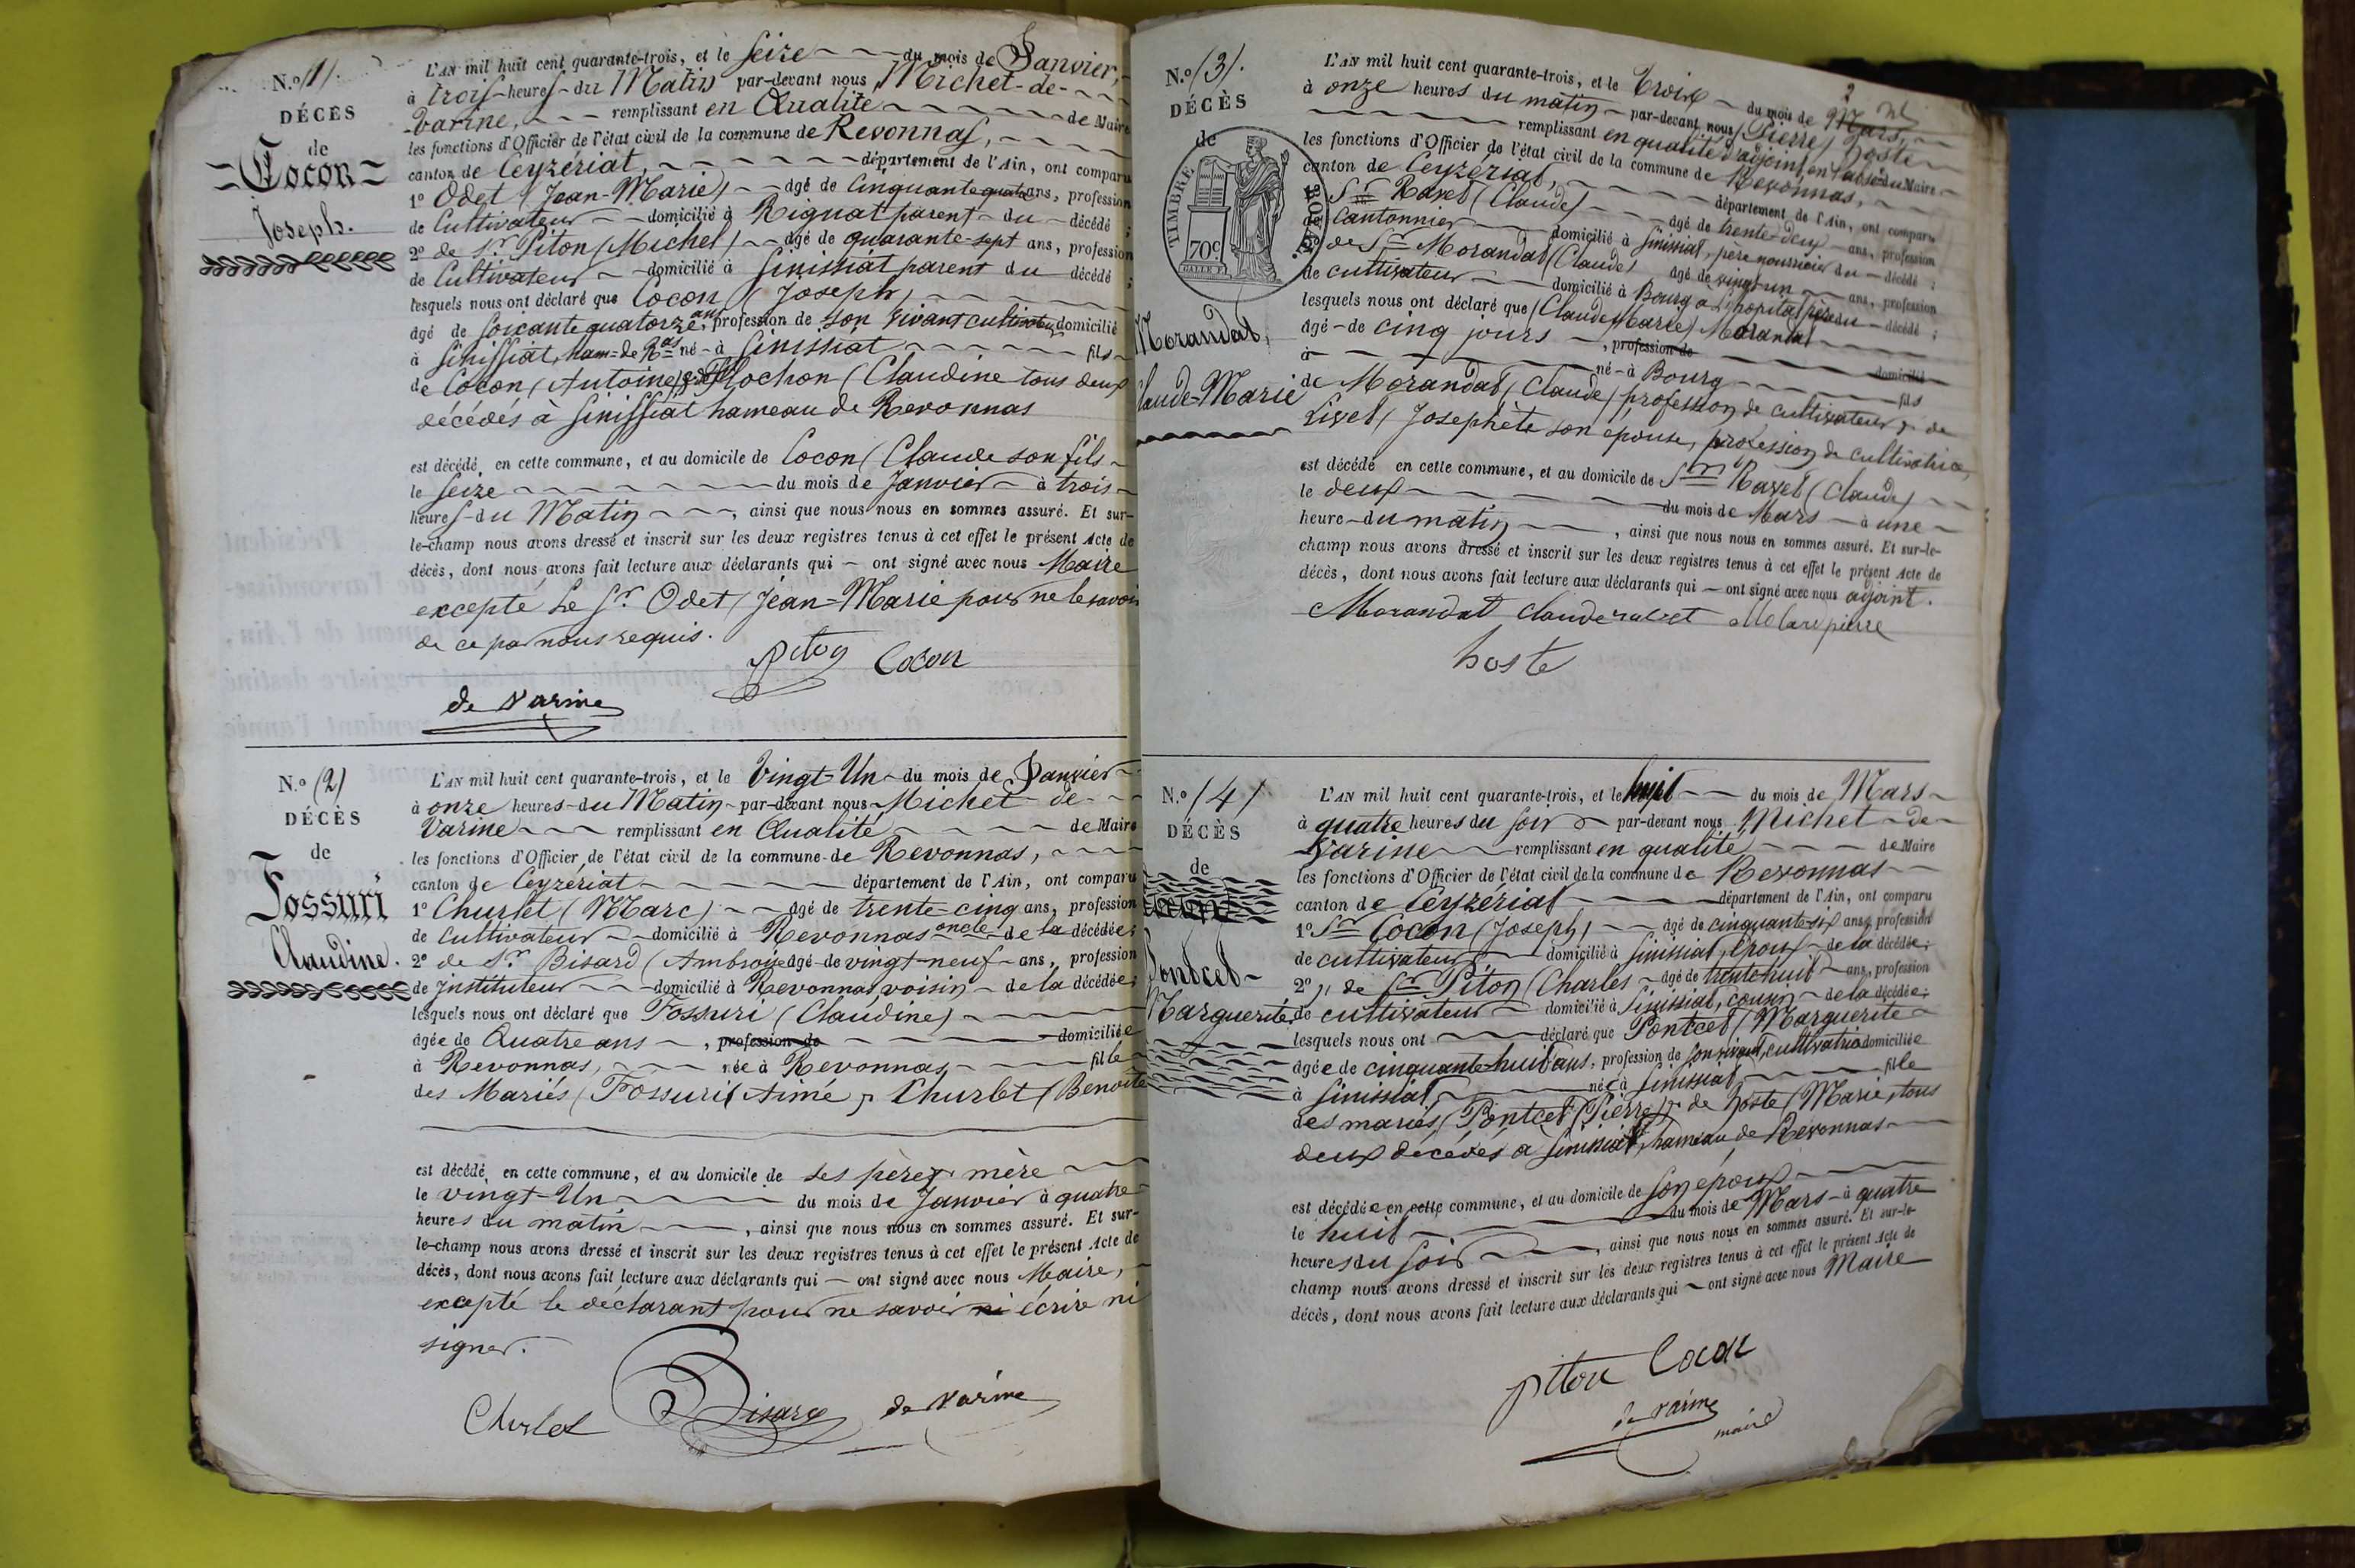 N.º (1).
DÉCÈS
de
Cocon
Joseph.
L'AN mil huit cent quarante-trois, et le Seize du mois de Janvier,
à trois heures du Matin par-devant nous Michet-de-
Varine, remplissant en Qualité de Maire
les fonctions d'Officier de l'état civil de la commune de Revonnas,
canton de Ceyzériat, département de l'Ain, ont comparu
1º Odet (Jean-Marie) agé de Cinquante quatre ans, profession
de Cultivateur domicilié à Rignat parent du décédé ;
2º de Sr. Piton (Michel) agé de quarante-sept ans, profession
de Cultivateur domicilié à Sinissiat parent du décédé ;
lesquels nous ont déclaré que Cocon (Joseph)
agé de soicante quatorze ans, profession de son vivant cultivateur domicilié
à Sinissiat, ham= de Ras né à Sinissiat fils
de Cocon (Antoine) & de Clochon (Claudine tous deux
décédés à Sinissiat hameau de Revonnas
est décédé en cette commune, et au domicile de Cocon (Claude son fils
le Seize du mois de Janvier à trois
heures du Matin, ainsi que nous nous en sommes assuré. Et sur-
le-champ nous avons dressé et inscrit sur les deux registres tenus à cet effet le présent Acte de
décès, dont nous avons fait lecture aux déclarants qui ont signé avec nous Maire
excepté le Sr. Odet (Jean-Marie pour ne le savoir
de ce par nous requis.
Piton Cocon
de Varine
N.º (2)
DÉCÈS
de
Fossuri
Claudine.
L'AN mil huit cent quarante-trois, et le Vingt-Un du mois de Janvier
à onze heures du Matin par-devant nous Michet de
Varine remplissant en Qualité de Maire
les fonctions d'Officier de l'état civil de la commune de Revonnas,
canton de Ceyzériat département de l'Ain, ont comparu
1º Churlet (Marc) agé de trente-cinq ans, profession
de cultivateur domicilié à Revonnas oncle de la décédée ;
2º de Sr. Bisard (Ambroise agé de vingt-neuf ans, profession
de instituteur domicilié à Revonnas, voisin de la décédée ;
lesquels nous ont déclaré que Fossuri (Claudine)
agée de Quatre ans, profession de domiciliée
à Revonnas, née à Revonnas fille
des Mariés (Fossuri Aimé & Churlet (Benoite
est décédé en cette commune, et au domicile de ses père & mère
le vingt-Un du mois de Janvier à quatre
heures du matin, ainsi que nous nous en sommes assuré. Et sur-
le-champ nous avons dressé et inscrit sur les deux registres tenus à cet effet le présent Acte de
décès, dont nous avons fait lecture aux déclarants qui ont signé avec nous Maire,
excepté le déclarant pour ne savoir ni écrire ni
signer.
Churlet Bisard de Varine
N.º (3).
DÉCÈS
de
TIMBRE ROYAL
70c.
Morandat,
Claude-Marie
L'AN mil huit cent quarante-trois, et le trois du mois de Mars,
à onze heures du matin par-devant nous Pierre hoste
remplissant en qualité d'adjoint, en l'abs. du Maire
les fonctions d'Officier de l'état civil de la commune de Revonnas,
canton de Ceyzériat, département de l'Ain, ont comparu
Sr Ravet (Claude) agé de trente-deux ans, profession
de Cantonnier domicilié à Sinissiat, père nourricier du décédé ;
de Sr Morandat (Claude) agé de vingt-un ans, profession
de cultivateur domicilié à Bourg à l'hopital père du décédé ;
lesquels nous ont déclaré que (Claude Marie) Morandat
agé de cinq jours, profession de domicilié
à né à Bourg fils
de Morandat (Claude) profession de cultivateur, & de
Livet (Josephète son épouse, profession de cultivatrice,
est décédé en cette commune, et au domicile de Sr Ravet (Claude)
le deux du mois de Mars à une
heure du matin, ainsi que nous nous en sommes assuré. Et sur-le-
champ nous avons dressé et inscrit sur les deux registres tenus à cet effet le présent Acte de
décès, dont nous avons fait lecture aux déclarants qui ont signé avec nous adjoint.
Morandat Claude ravet pierre
hoste
N.º (4)
DÉCÈS
de
Pontcet
Marguerite
L'AN mil huit cent quarante-trois, et le huit du mois de Mars
à quatre heures du soir par-devant nous Michet de
Varine remplissant en qualité de Maire
les fonctions d'Officier de l'état civil de la commune de Revonnas
canton de Ceyzériat département de l'Ain, ont comparu
1º Sr Cocon (Joseph) agé de cinquante-six ans, profession
de cultivateur domicilié à Sinissiat, époux de la décédée ;
2º de Sr Piton (Charles agé de trente huit ans, profession
de cultivateur domicilié à Sinissiat, cousin de la décédée ;
lesquels nous ont déclaré que Pontcet (Marguerite
agée de cinquante-huit ans, profession de son vivant cultivatrice domiciliée
à Sinissiat, née à Sinissiat fille
des mariés (Pontcet (Pierre) & de hoste (Marie, tous
deux décédés à Sinissiat, hameau de Revonnas
est décédée en cette commune, et au domicile de son époux
le huit du mois de Mars à quatre
heures du soir, ainsi que nous nous en sommes assuré. Et sur-le-
champ nous avons dressé et inscrit sur les deux registres tenus à cet effet le présent Acte de
décès, dont nous avons fait lecture aux déclarants qui ont signé avec nous Maire
piton Cocon
de Varine
maire